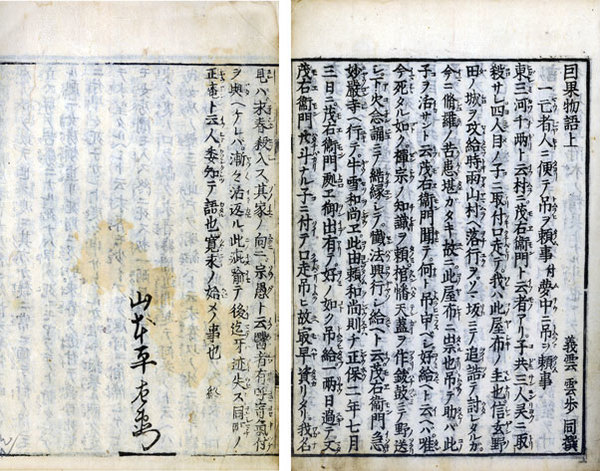 因果物語上　義雲　雲歩　同撰
一亡者人ニ便テ吊ヲ頼事付夢中ニ吊ヲ頼事
東三河千両ト云村ニ茂右衛門ト云者アリ子共三人呉ニ取
殺サレ四人目ノ子ニ取付口走テ我ハ此屋布ノ主也信玄野
田ノ城ヲ攻給時雨山村ヘ落行ヲソハ坂ニテ追詰ラレ討レタルカ
今ニ脩羅ノ苦患堪カタキ故ニ此屋布ニ祟也吊テ助ハ此
子ヲ活サント云茂右衛門聞テ何ト吊申ベシ好給ヘト云ヘハ唯
今死タル如ク禅宗ノ知識ヲ頼棺幡天蓋ヲ作鈸鼓ニテ野送
シテ下火念誦ニテ結縁シテ懺法興行シ給ヘト云茂右衛門急
妙厳寺ヘ行テ牛雪和尚エ此由頼和尚則チ正保二年七月
三日ニ茂右衛門処エ御出有テ好ノ如ク吊給一両日過テ又
茂右衛門廿斗ナル子ニ付テ口走吊ヒ故ニ寂早資リタリ我名
見ハ末春殺入ス其家ノ向ニ宗愚ト云醫者有呼寄氣付
ヲ與ヘケレハ漸々活返ル此疵愈テ後迄牙迹失ス同所ノ
正庵ト云人委知テ語也寛永ノ始メノ事也　終
山本平左衛門